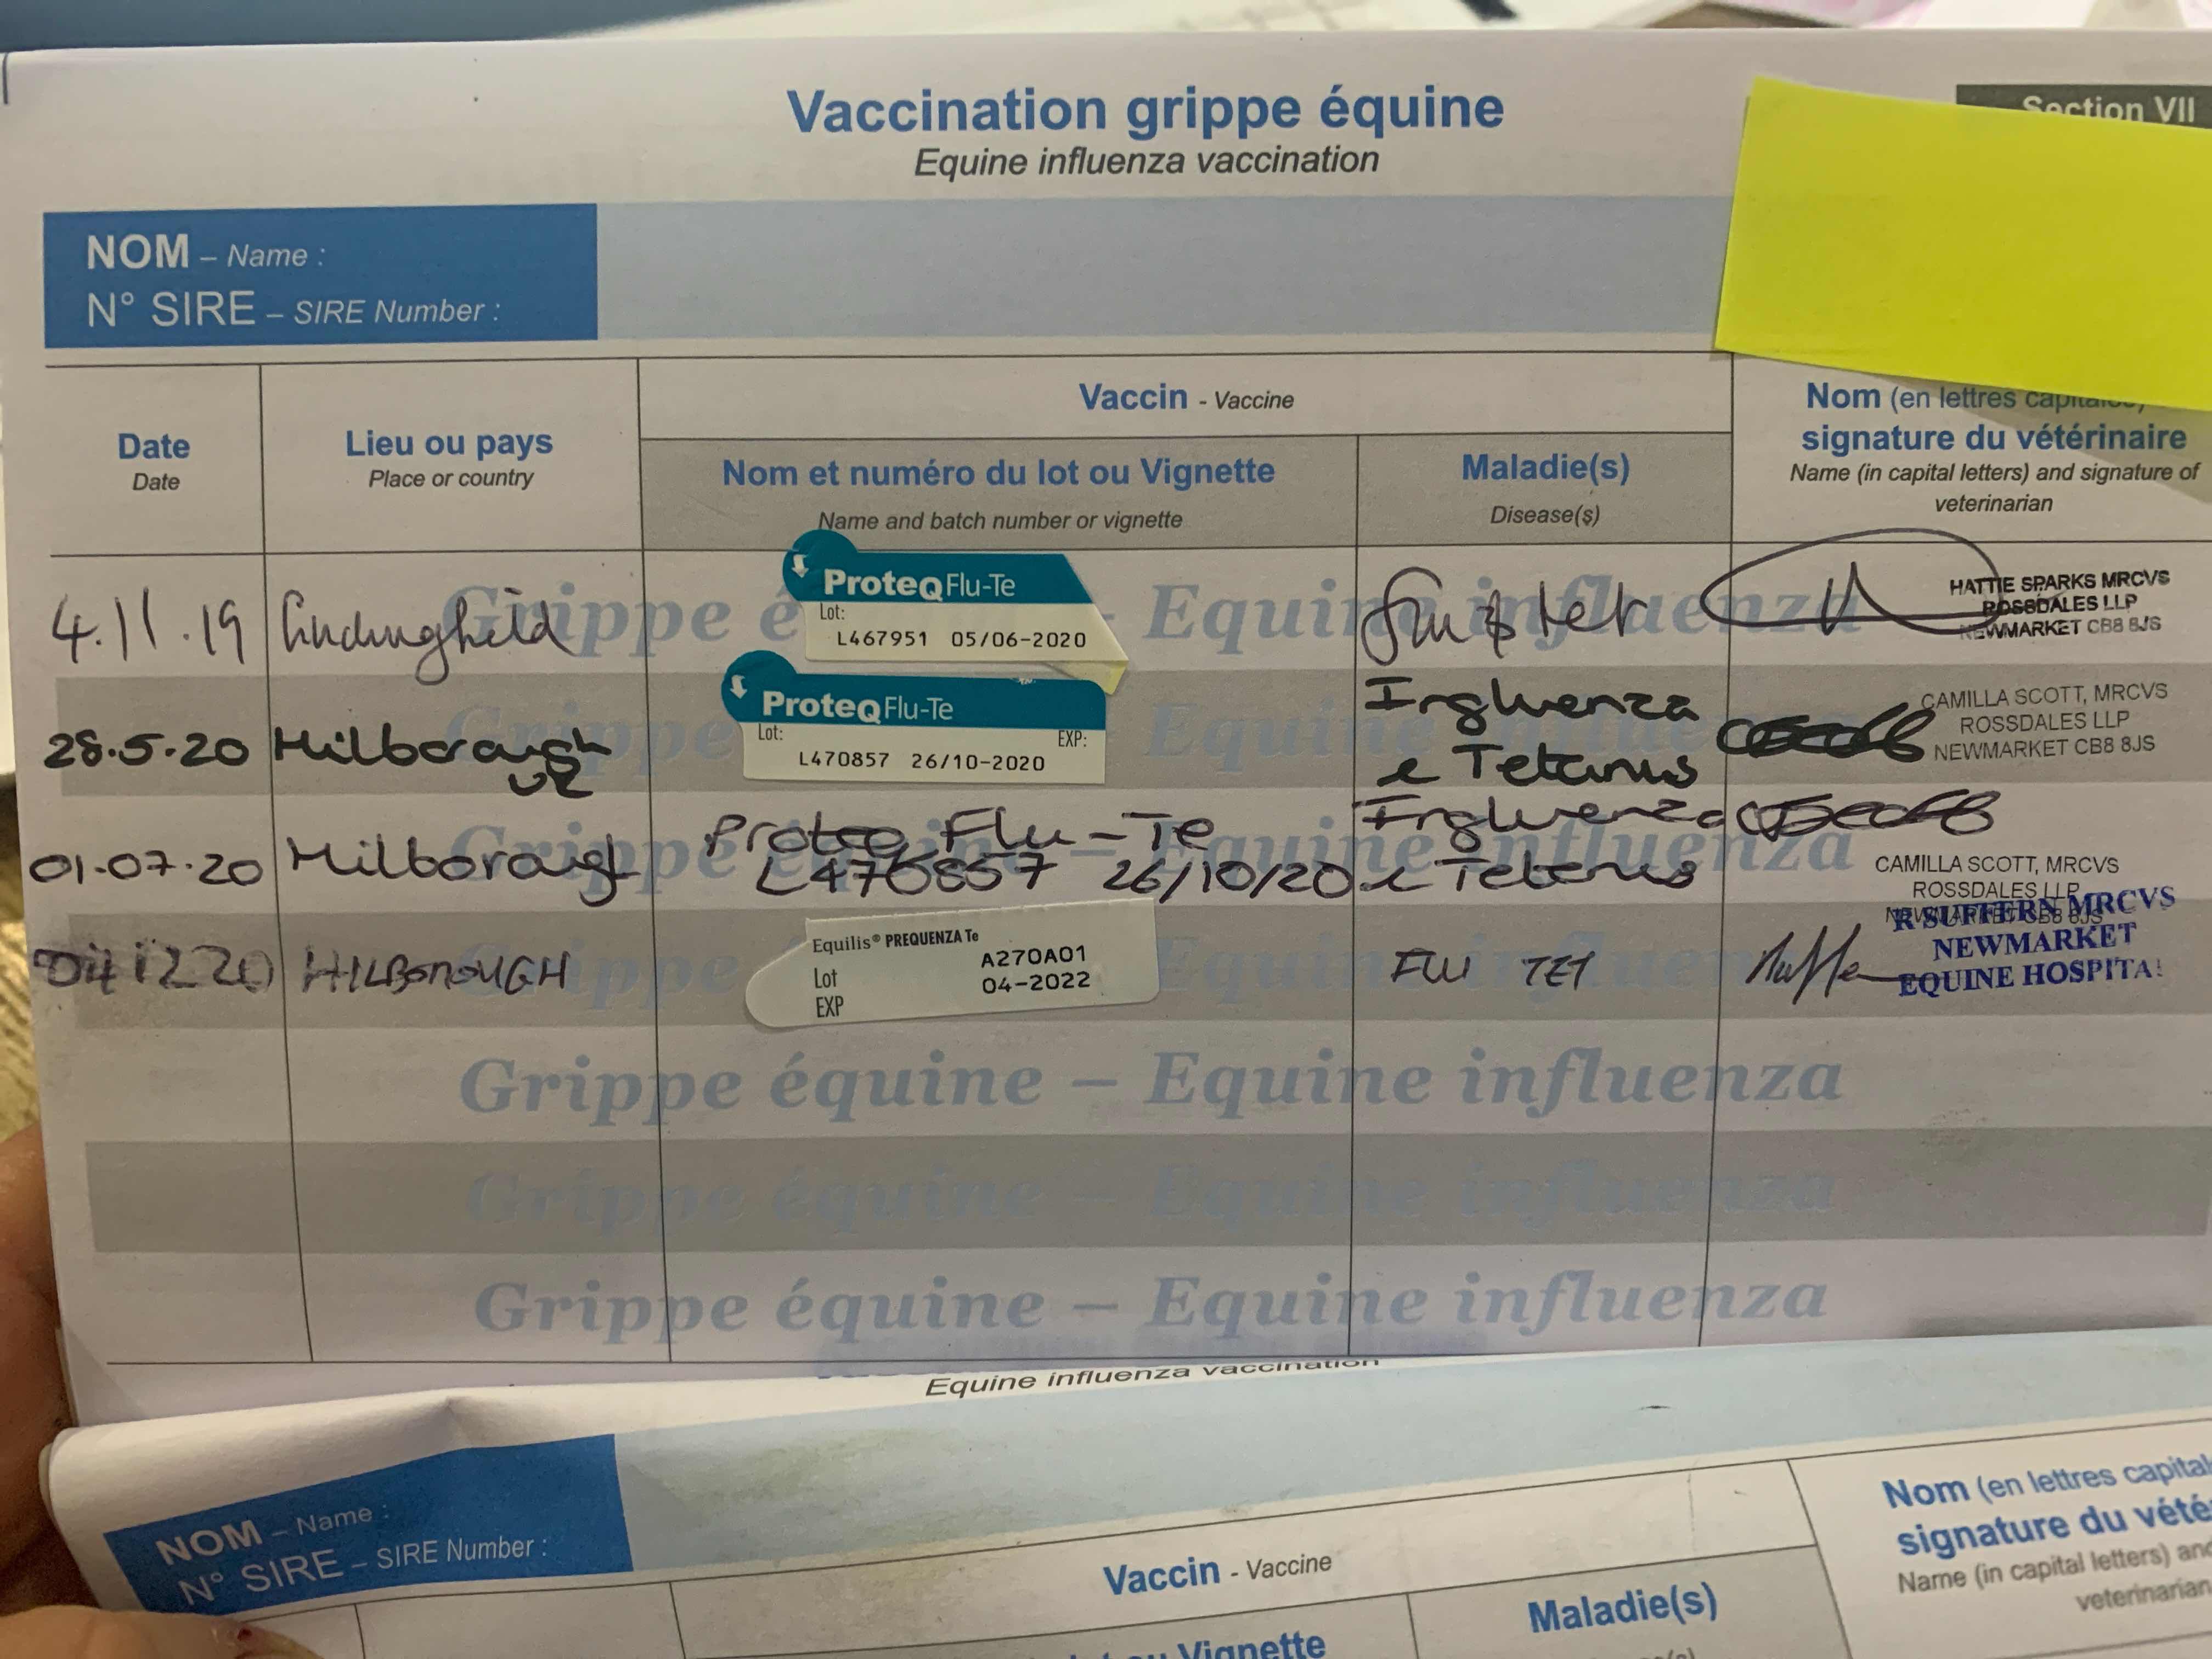 Vaccination grippe équine
Equine influenza vaccination
Section VII
NOM – Name :
N° SIRE – SIRE Number :
Date
Date
Lieu ou pays
Place or country
Vaccin - Vaccine
Nom et numéro du lot ou Vignette
Name and batch number or vignette
Maladie(s)
Disease(s)
Nom (en lettres capitales)
signature du vétérinaire
Name (in capital letters) and signature of
veterinarian
4.11.19
ProteqFlu-Te
Lot:
L467951 05/06-2020
Flu & tet
HATTIE SPARKS MRCVS
ROSSDALES LLP
NEWMARKET CB8 8JS
Grippe équine – Equine influenza
28.5.20
Hilborough
ProteqFlu-Te
Lot: EXP:
L470857 26/10-2020
Influenza
& Tetanus
CAMILLA SCOTT, MRCVS
ROSSDALES LLP
NEWMARKET CB8 8JS
Grippe équine – Equine influenza
01.07.20
Hilborough
Proteq Flu-Te
L470857 26/10/20
Influenza
& Tetanus
CAMILLA SCOTT, MRCVS
ROSSDALES LLP
NEWMARKET CB8 8JS
Grippe équine – Equine influenza
04 12 20
HILBOROUGH
Equilis® PREQUENZA Te
A270A01
Lot 04-2022
EXP
FLU TET
R SUFFERN MRCVS
NEWMARKET
EQUINE HOSPITAL
Grippe équine – Equine influenza
Grippe équine – Equine influenza
Grippe équine – Equine influenza
Grippe équine – Equine influenza
Equine influenza vaccination
NOM – Name :
N° SIRE – SIRE Number :
Vaccin - Vaccine
Vignette
Maladie(s)
Nom (en lettres capital
signature du vété
Name (in capital letters) and
veterinarian